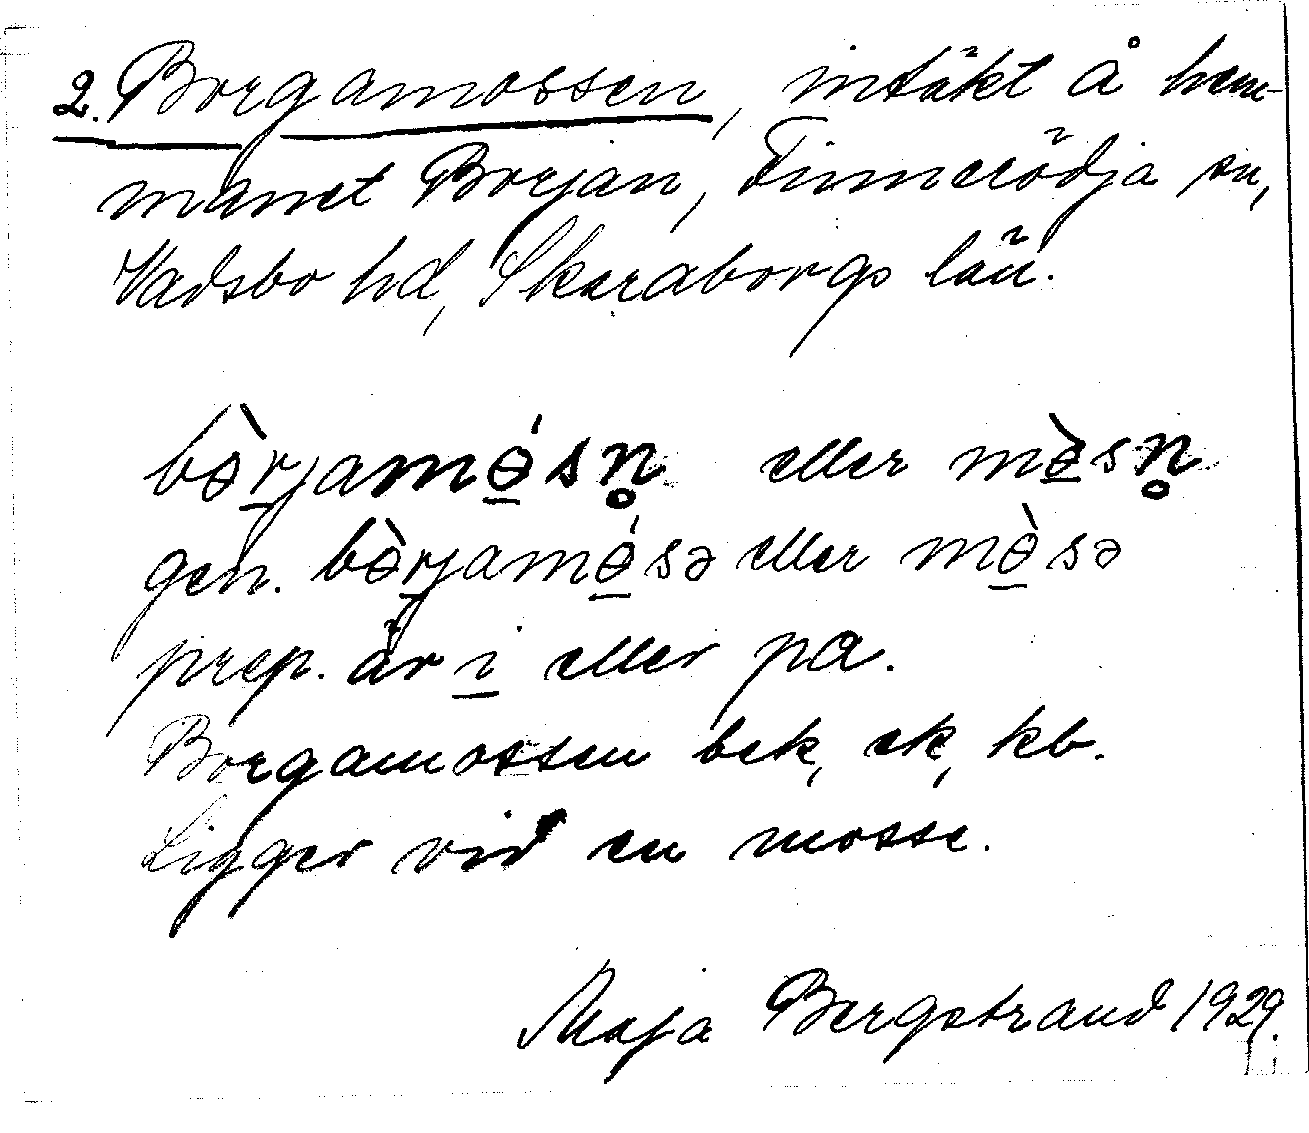 2. Borgamossen, intäkt å hem-
manet Borjan, Finnerödja sn,
Vadsbo hd, Skaraborgs län.
bɵ̀rjamɵ́sn̥ eller mɵ̀sn̥
gen. bɵ̀rjamɵ́sə eller mɵ̀sə
prep. är i eller pa.
Borgamossen bek, ek, kb.
Ligger vid en mosse.
Maja Bergstrand 1929.